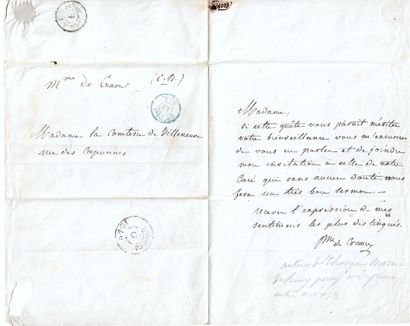 Mme de Craon (C. A)
Madame la Comtesse de Villeneuve
rue des Capucines
Madame,
si cette quête vous parait mériter
votre bienveillance vous m'excuserez
de vous en parler et de joindre
mon invitation à celle de notre
Curé qui sans aucun doute vous
fera un très bon sermon —
recevez l'expression de mes
sentiments les plus distingués.
Psse de Craon
auteur de Thomas Morus